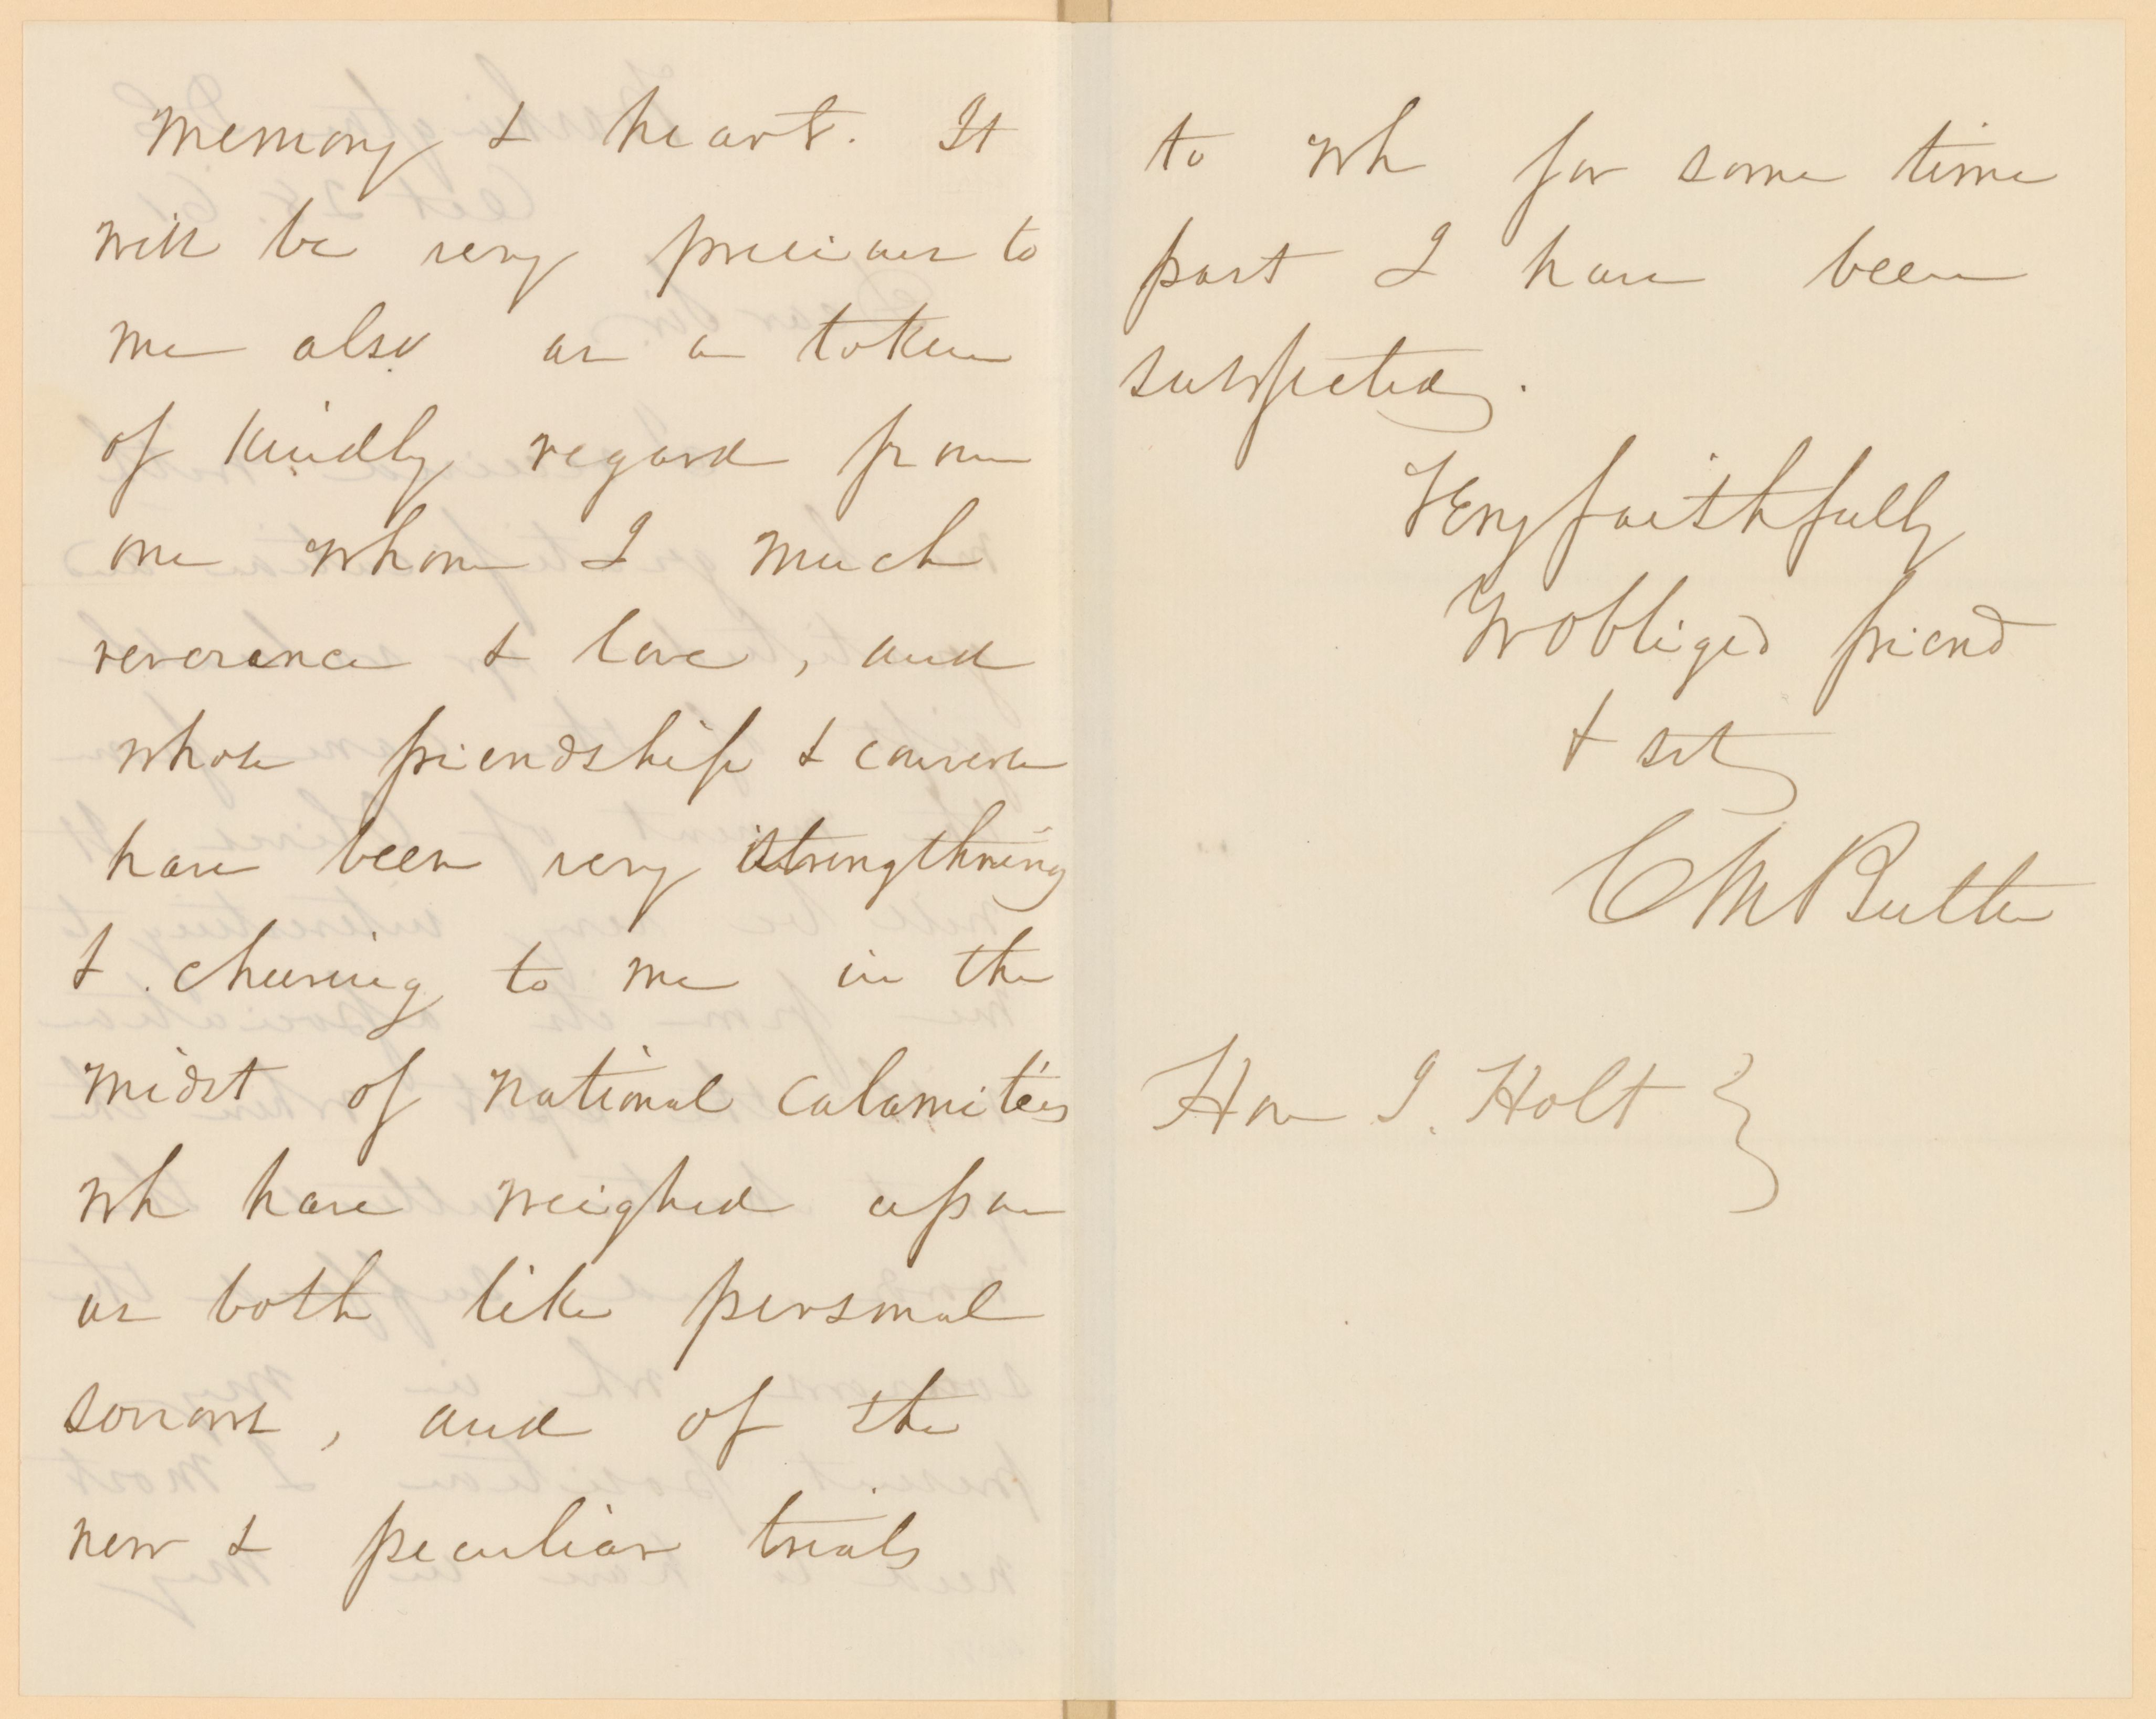 memory & heart. It
will be very precious to
me also as a token
of kindly regard from
one whom I much
reverence & love, and
whose friendship & converse
have been very strengthning
& cheering to me in the
midst of national calamities
wh have weighed upon
us both like personal
sorrows, and of the
new & peculiar trials
to wh for some time
past I have been
subjected.
Very faithfully
Yr obliged friend
& svt
C M Butler
Hon J. Holt